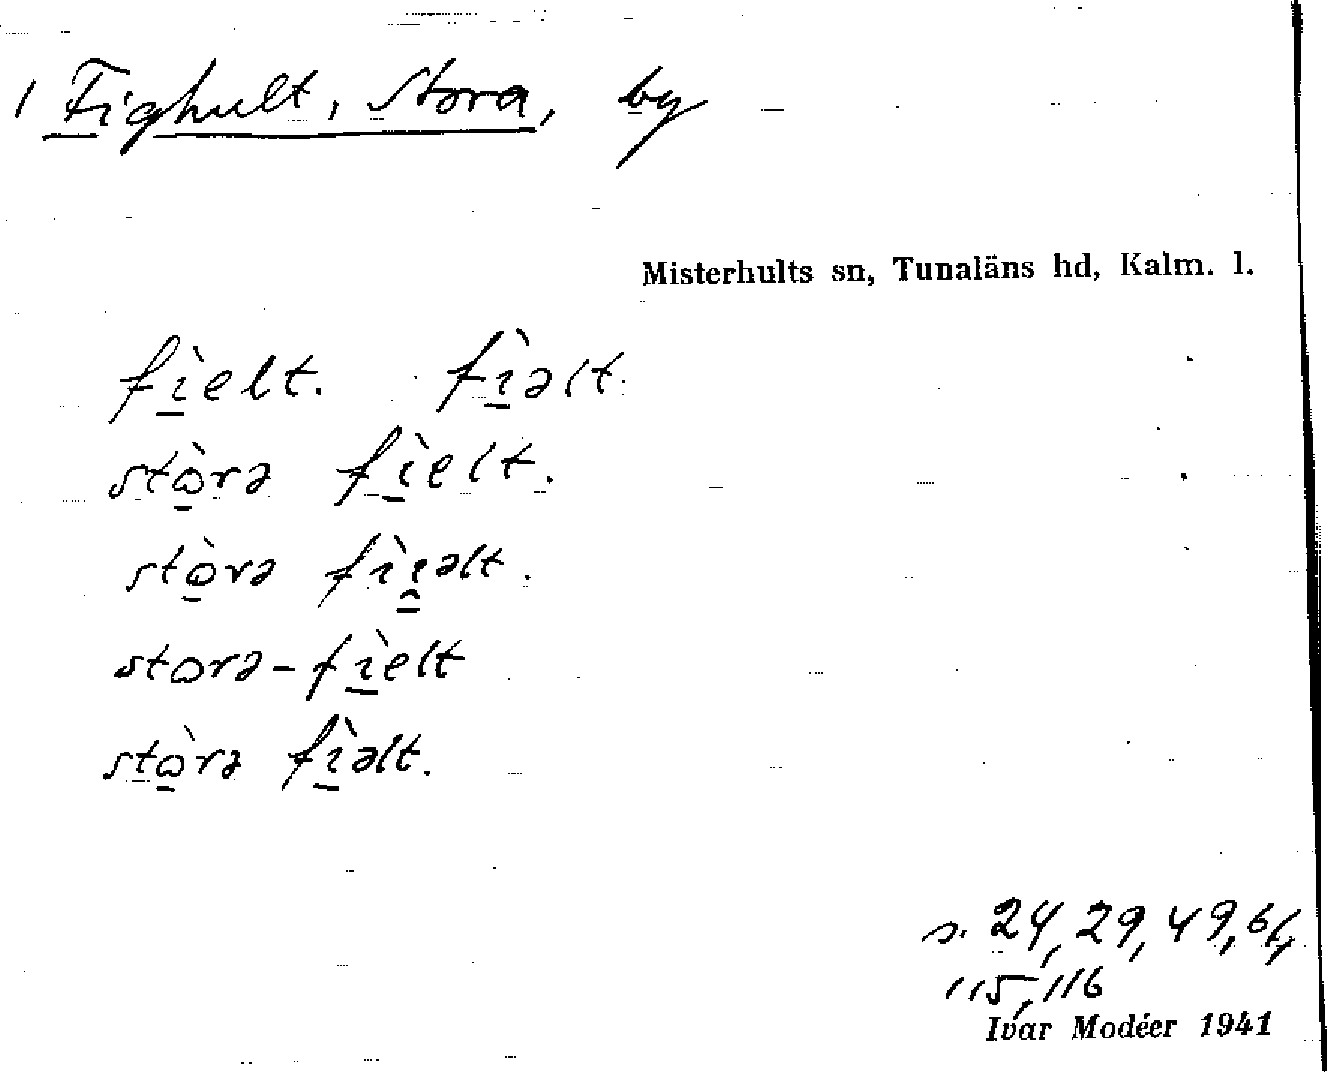 1 Fighult, Stora, by
Misterhults sn, Tunaläns hd, Kalm. l.
fı̲̀elt. fı̲̀əlt.
stò̲rə fı̲̀elt.
stò̲rə fı̀ı̯̲əlt.
storə-fı̲̀elt
stò̲rə fı̲̀əlt.
s. 24, 29, 49,
115, 116
Ivar Modéer 1941